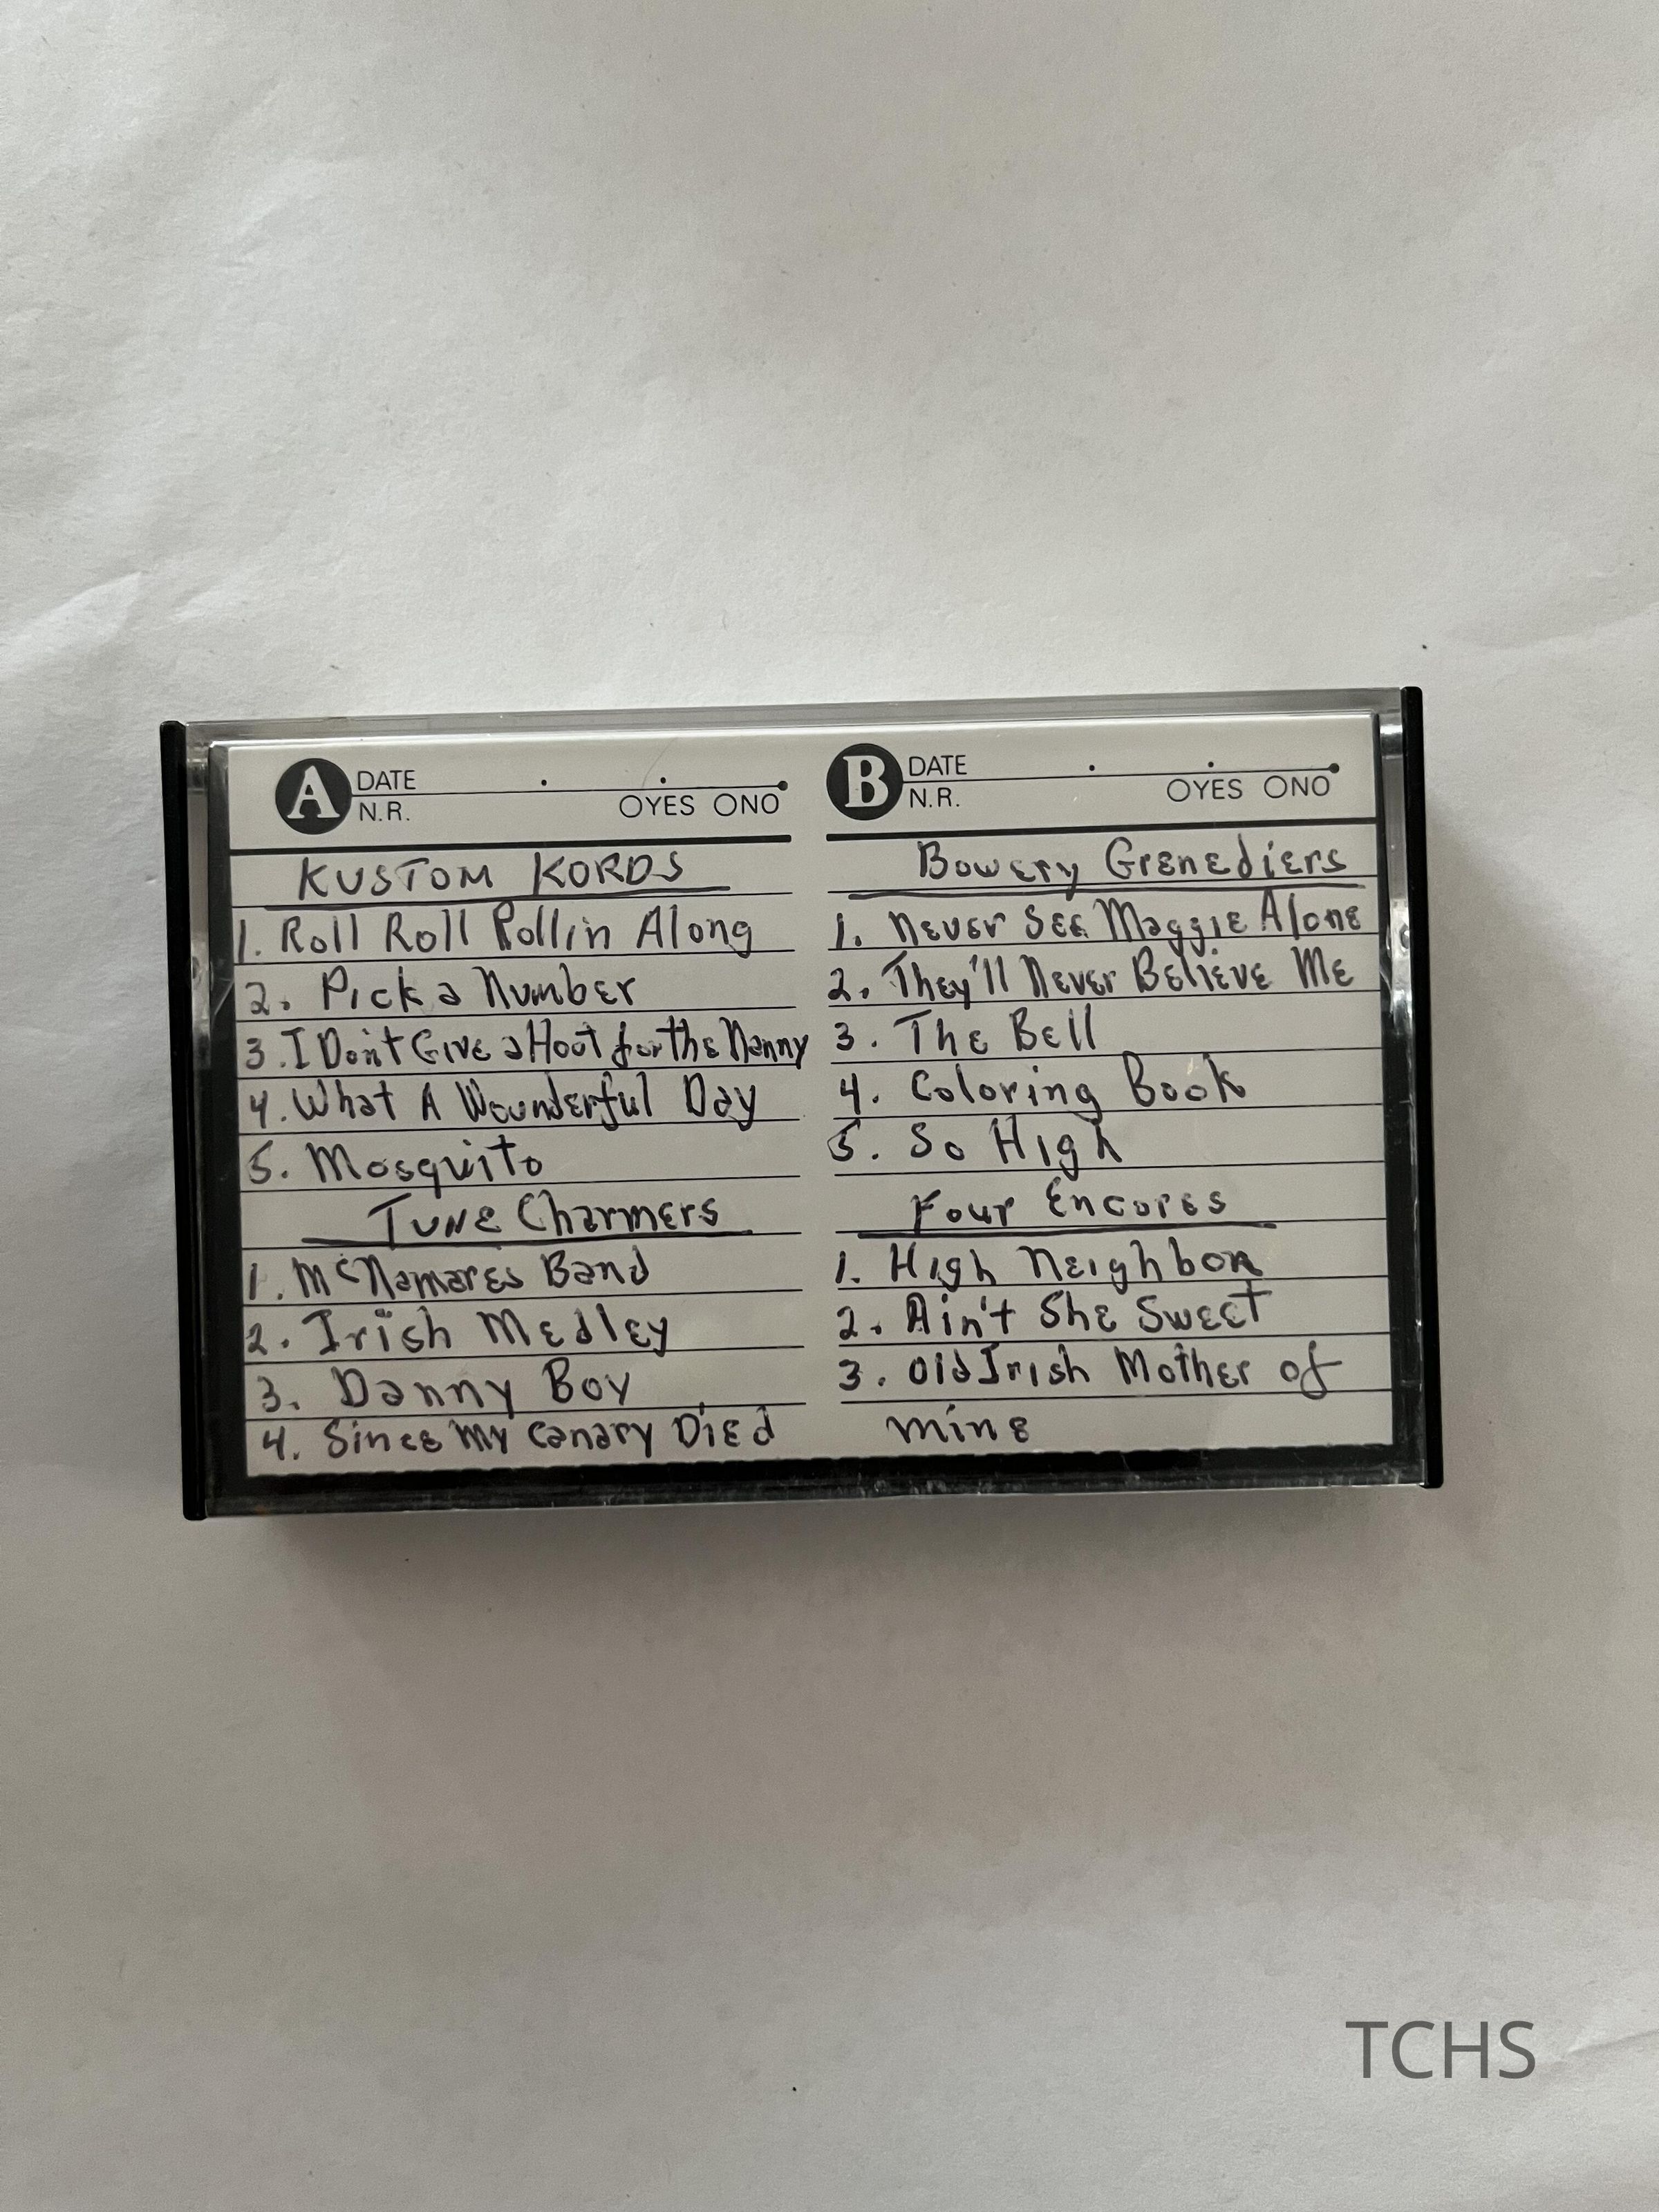 A DATE
N.R. OYES ONO
KUSTOM KORDS
1. Roll Roll Rollin Along
2. Pick a Number
3. I Don't Give a Hoot for the Nanny
4. What A Wounderful Day
5. Mosquito
Tune Charmers
1. McNamares Band
2. Irish Medley
3. Danny Boy
4. Since My Canary Died
B DATE
N.R. OYES ONO
Bowery Grenediers
1. Never See Maggie Alone
2. They'll Never Believe Me
3. The Bell
4. Coloring Book
5. So High
Four Encores
1. High Neighbor
2. Ain't She Sweet
3. Old Irish Mother of
mine
TCHS